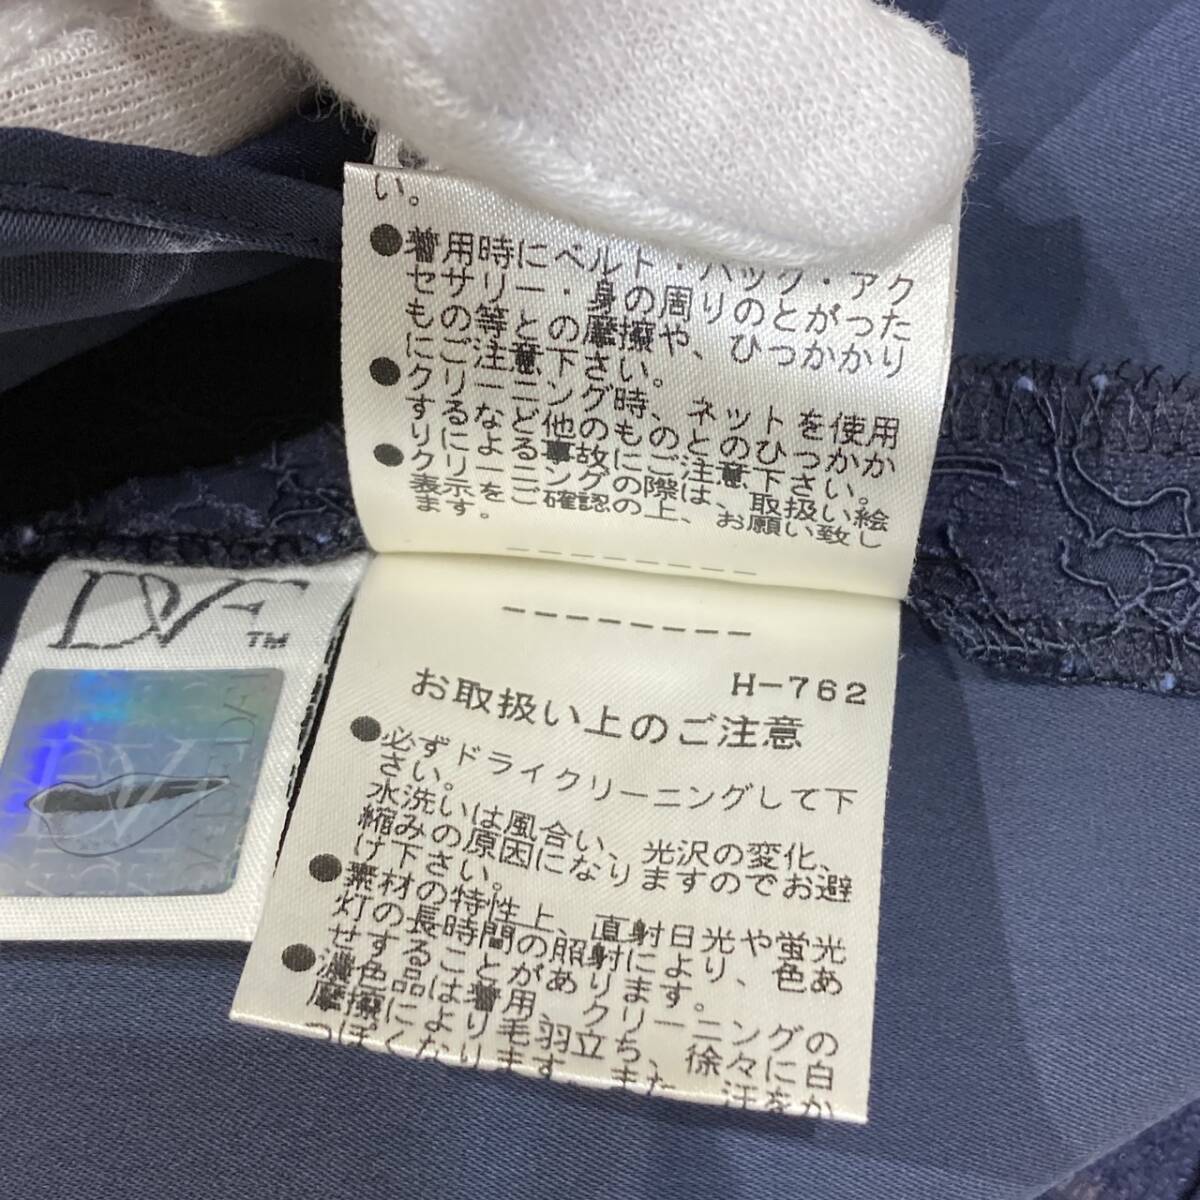 い。
●着用時にベルト・バッグ・アク
セサリー・身の周りのとがった
もの等との摩擦や、ひっかかり
にご注意下さい。
●クリーニング時、ネットを使用
するなど他のものとのひっかか
りによる事故にご注意下さい。
●クリーニングの際は、取扱い絵
表示をご確認の上、お願い致し
ます。
DVF™
H-762
お取扱い上のご注意
●必ずドライクリーニングして下
さい。
水洗いは風合い、光沢の変化、
縮みの原因になりますのでお避
け下さい。
●素材の特性上、直射日光や蛍光
灯の長時間の照射により、色あ
せすることがあります。
●濃色品は着用、クリーニングの
摩擦により毛羽立ち、徐々に白
っぽくなります。また、汗をか